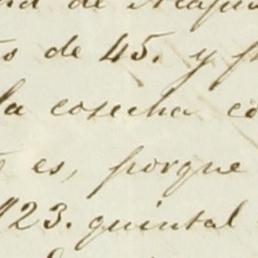 de Acapul
s de 45. y f
la cosecha co
es, porque
23. quintal